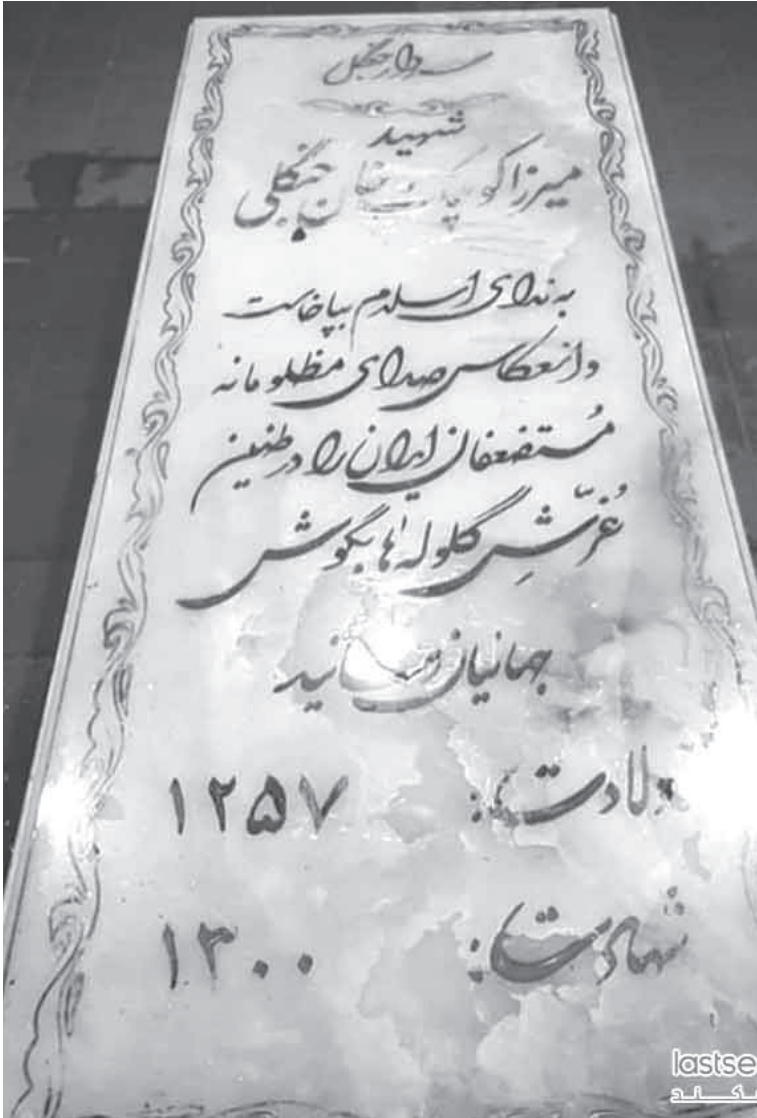 سردار جنگل
شهید
میرزا کوچک خان جنگلی
به ندای اسلام بپاخاست
و انعکاس صدای مظلومانه
مُستضعفان ایران را در طنین
غُرّشِ گلوله‌ها بگوش
جهانیان رسانید
ولادت: ۱۲۵۷
شهادت: ۱۳۰۰
lastse